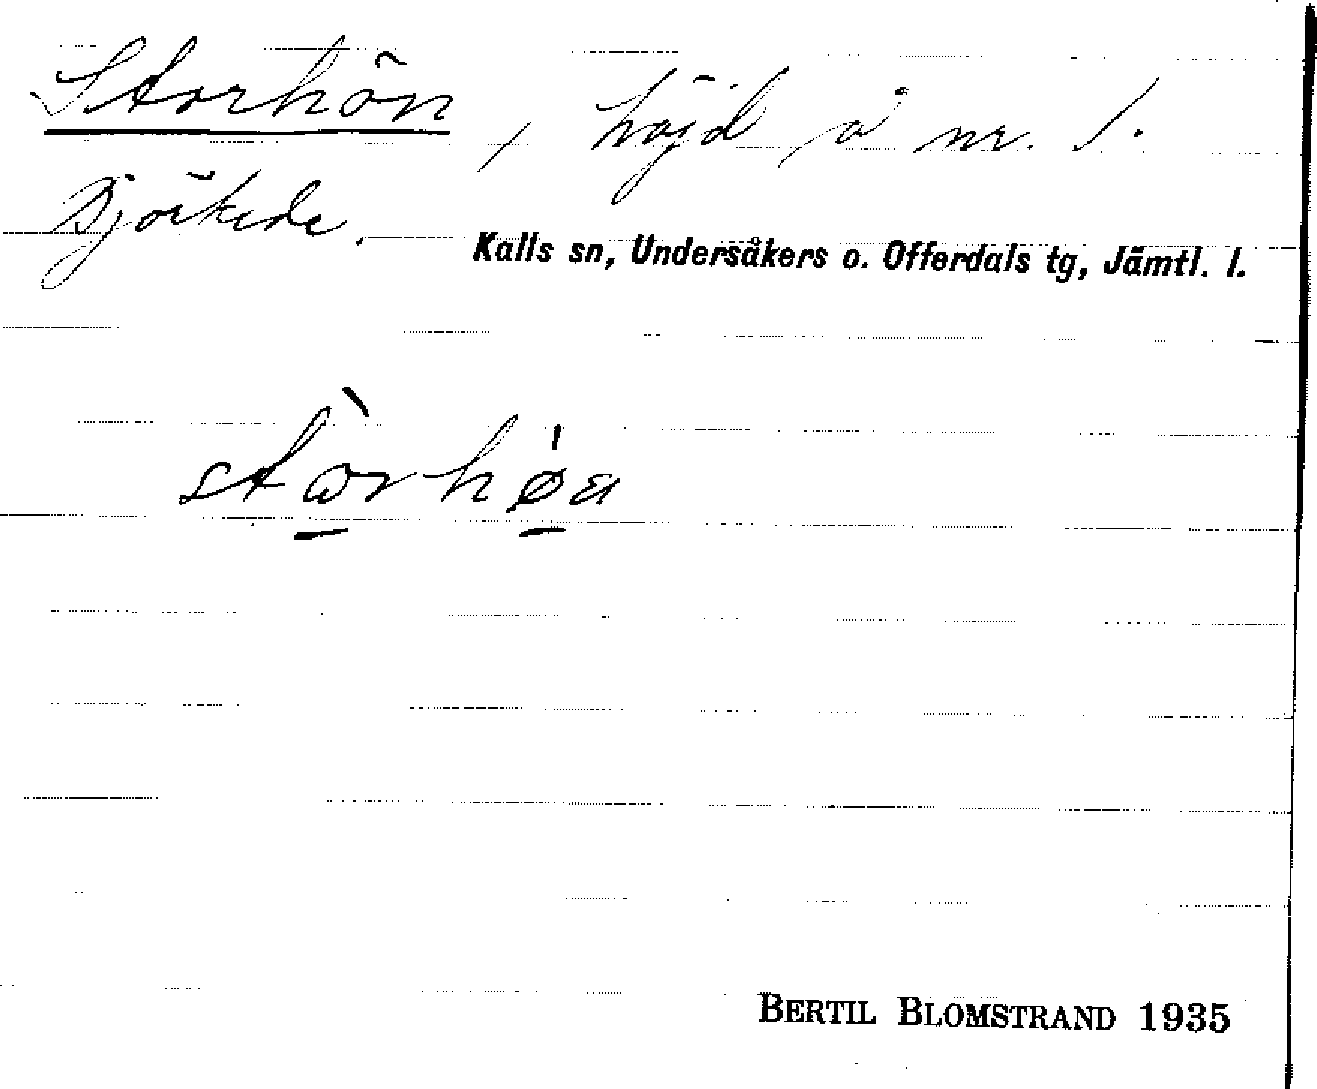 Storhön, höjd å nr. 1.
Björkede.
Kalls sn, Undersåkers o. Offerdals tg, Jämtl. l.
stɷ̀rhǿa
BERTIL BLOMSTRAND 1935